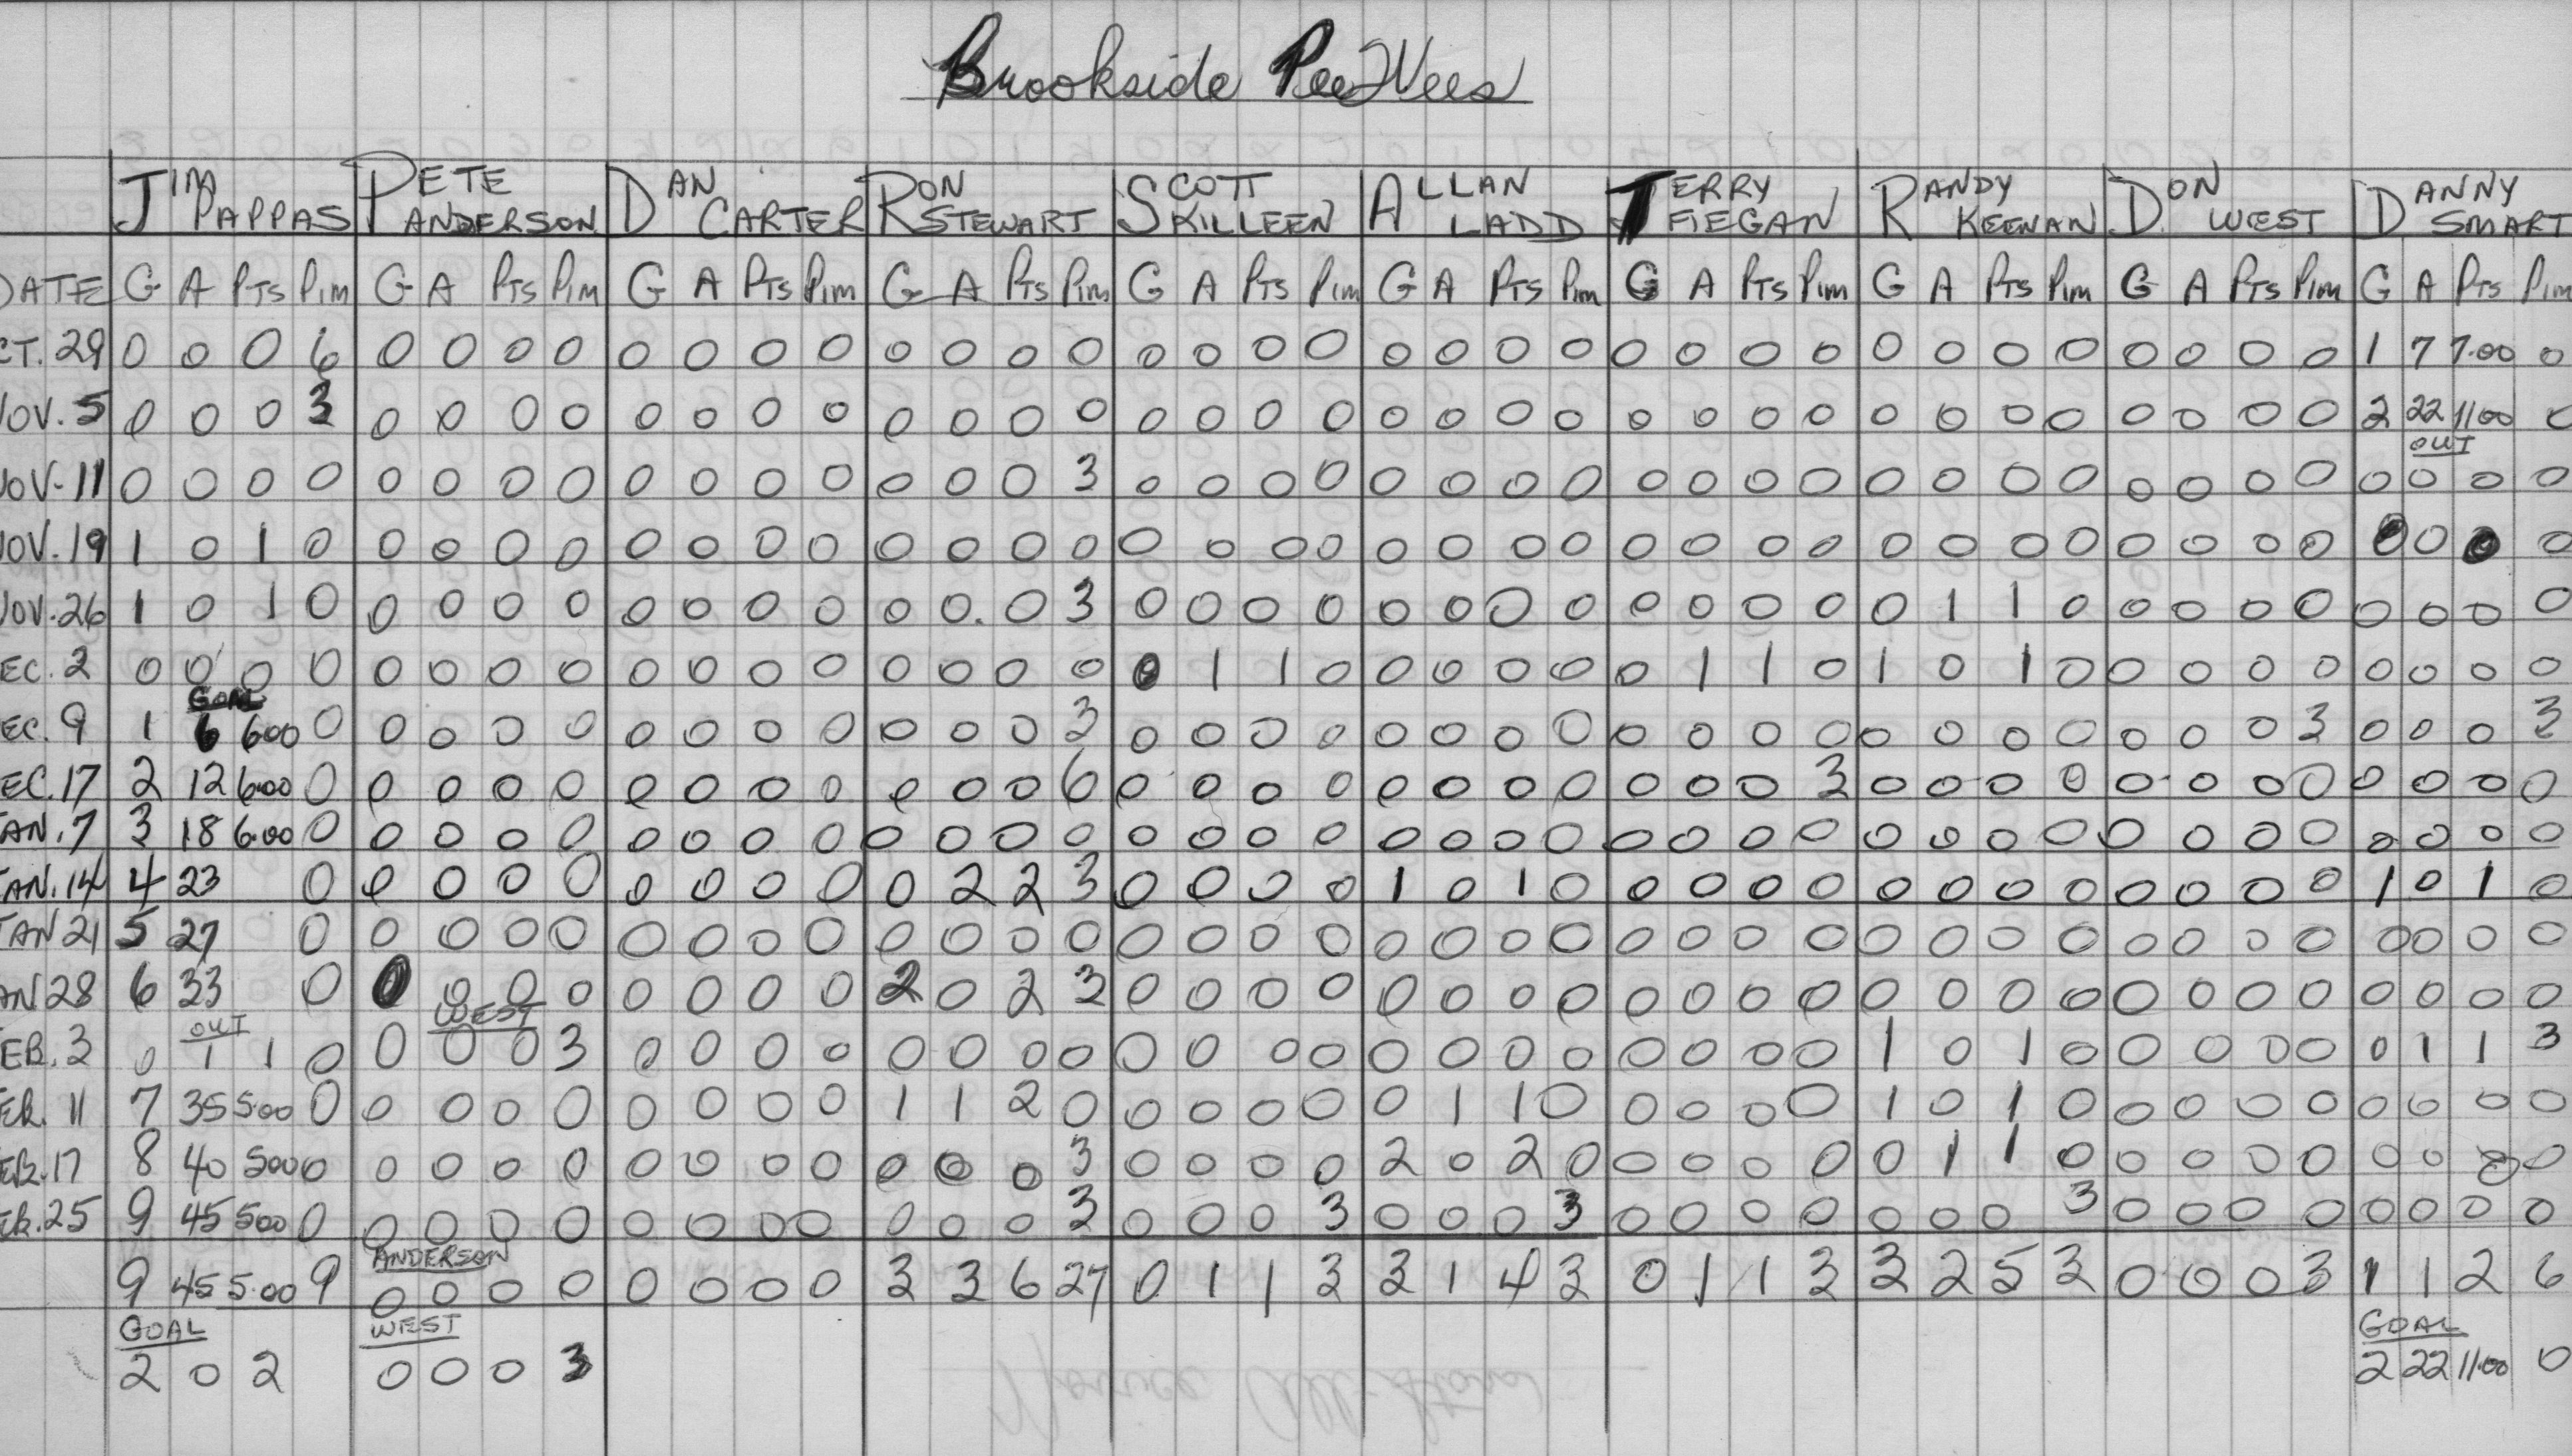 Brookside PeeWees
JIM PAPPAS PETE ANDERSON DAN CARTER RON STEWART SCOTT KILLEEN ALLAN LADD TERRY FIEGAN RANDY KEENAN DON WEST DANNY SMART
DATE G A PTS PIM G A PTS PIM G A PTS PIM G A PTS PIM G A PTS PIM G A PTS PIM G A PTS PIM G A PTS PIM G A PTS PIM G A PTS PIM
CT. 29 0 0 0 6 0 0 0 0 0 0 0 0 0 0 0 0 0 0 0 0 0 0 0 0 0 0 0 0 0 0 0 0 0 0 0 0 1 7 7.00 0
NOV. 5 0 0 0 3 0 0 0 0 0 0 0 0 0 0 0 0 0 0 0 0 0 0 0 0 0 0 0 0 0 0 0 0 0 0 0 0 2 22 11.00 0
OUT
NOV. 11 0 0 0 0 0 0 0 0 0 0 0 0 0 0 0 3 0 0 0 0 0 0 0 0 0 0 0 0 0 0 0 0 0 0 0 0 0 0 0 0
NOV. 19 1 0 1 0 0 0 0 0 0 0 0 0 0 0 0 0 0 0 0 0 0 0 0 0 0 0 0 0 0 0 0 0 0 0 0 0 0 0 0 0
NOV. 26 1 0 1 0 0 0 0 0 0 0 0 0 0 0. 0 3 0 0 0 0 0 0 0 0 0 0 0 0 0 1 1 0 0 0 0 0 0 0 0 0
EC. 2 0 0 0 0 0 0 0 0 0 0 0 0 0 0 0 0 0 1 1 0 0 0 0 0 0 1 1 0 1 0 1 0 0 0 0 0 0 0 0 0
GOAL
EC. 9 1 6 6.00 0 0 0 0 0 0 0 0 0 0 0 0 3 0 0 0 0 0 0 0 0 0 0 0 0 0 0 0 0 0 0 0 3 0 0 0 3
EC. 17 2 12 6.00 0 0 0 0 0 0 0 0 0 0 0 0 6 0 0 0 0 0 0 0 0 0 0 0 3 0 0 0 0 0 0 0 0 0 0 0 0
AN. 7 3 18 6.00 0 0 0 0 0 0 0 0 0 0 0 0 0 0 0 0 0 0 0 0 0 0 0 0 0 0 0 0 0 0 0 0 0 0 0 0 0
JAN. 14 4 23 0 0 0 0 0 0 0 0 0 0 2 2 3 0 0 0 0 1 0 1 0 0 0 0 0 0 0 0 0 0 0 0 0 1 0 1 0
JAN 21 5 27 0 0 0 0 0 0 0 0 0 0 0 0 0 0 0 0 0 0 0 0 0 0 0 0 0 0 0 0 0 0 0 0 0 0 0 0 0
AN 28 6 33 0 0 0 0 0 0 0 0 0 2 0 2 3 0 0 0 0 0 0 0 0 0 0 0 0 0 0 0 0 0 0 0 0 0 0 0 0
OUT WEST
FEB. 3 0 1 1 0 0 0 0 3 0 0 0 0 0 0 0 0 0 0 0 0 0 0 0 0 0 0 0 0 1 0 1 0 0 0 0 0 0 1 1 3
FEB. 11 7 35 5.00 0 0 0 0 0 0 0 0 0 1 1 2 0 0 0 0 0 0 1 1 0 0 0 0 0 1 0 1 0 0 0 0 0 0 0 0 0
EB. 17 8 40 500 0 0 0 0 0 0 0 0 0 0 0 0 3 0 0 0 0 2 0 2 0 0 0 0 0 0 1 1 0 0 0 0 0 0 0 0 0
EB. 25 9 45 500 0 0 0 0 0 0 0 0 0 0 0 0 3 0 0 0 3 0 0 0 3 0 0 0 0 0 0 0 3 0 0 0 0 0 0 0 0
ANDERSON
9 45 5.00 9 0 0 0 0 0 0 0 0 3 3 6 27 0 1 1 3 3 1 4 3 0 1 1 3 3 2 5 3 0 0 0 3 1 1 2 6
GOAL WEST GOAL
2 0 2 0 0 0 3 2 22 11.00 0